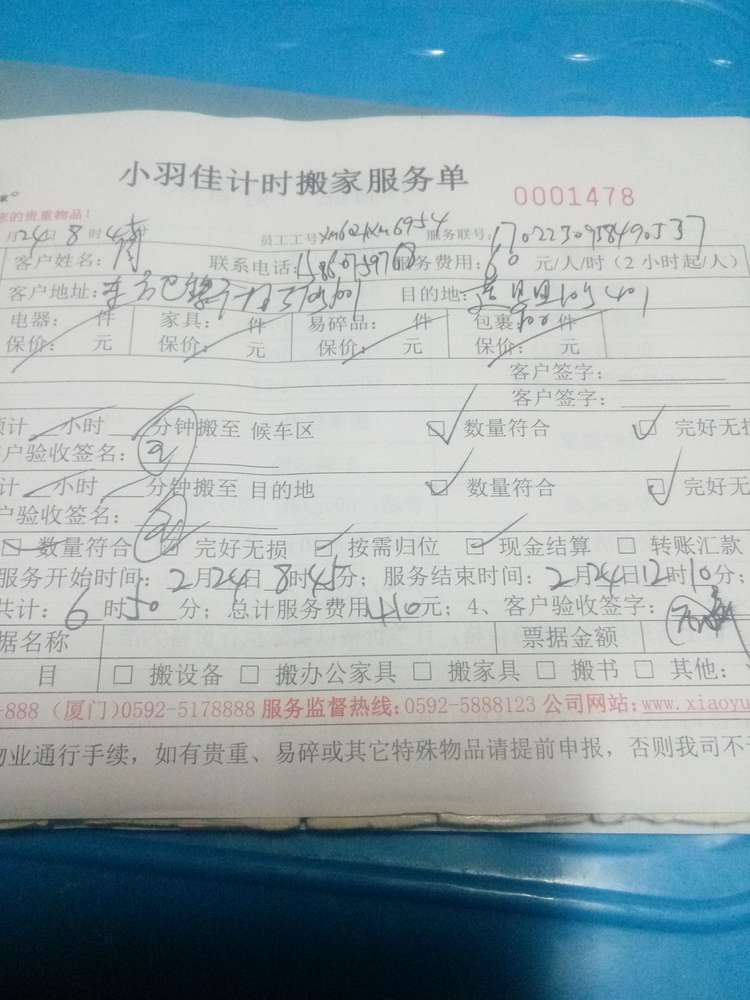 小羽佳计时搬家服务单
0001478
来的贵重物品!
月24日8时 员工工号: 服务联号:1702230958490537
客户姓名: 联系电话: 服务费用:60元/人/时(2小时起/人)
客户地址: 目的地:
电器: 件 家具: 件 易碎品: 件 包裹: 件
保价: 元 保价: 元 保价: 元 保价: 元
客户签字:
客户签字:
预计 小时 分钟搬至 候车区 ☑ 数量符合 ☑ 完好无损
客户验收签名:
计 小时 分钟搬至 目的地 ☑ 数量符合 ☑ 完好无
户验收签名:
☑ 数量符合 ☑ 完好无损 ☑ 按需归位 ☑ 现金结算 □ 转账汇款
服务开始时间:2月24日8时45分;服务结束时间:2月24日12时10分;
共计:6时50分;总计服务费用410元;4、客户验收签字:
据名称 票据金额
目 □ 搬设备 □ 搬办公家具 □ 搬家具 □ 搬书 □ 其他:
-888 (厦门)0592-5178888 服务监督热线:0592-5888123 公司网站:www.xiaoyu
物业通行手续,如有贵重、易碎或其它特殊物品请提前申报,否则我司不